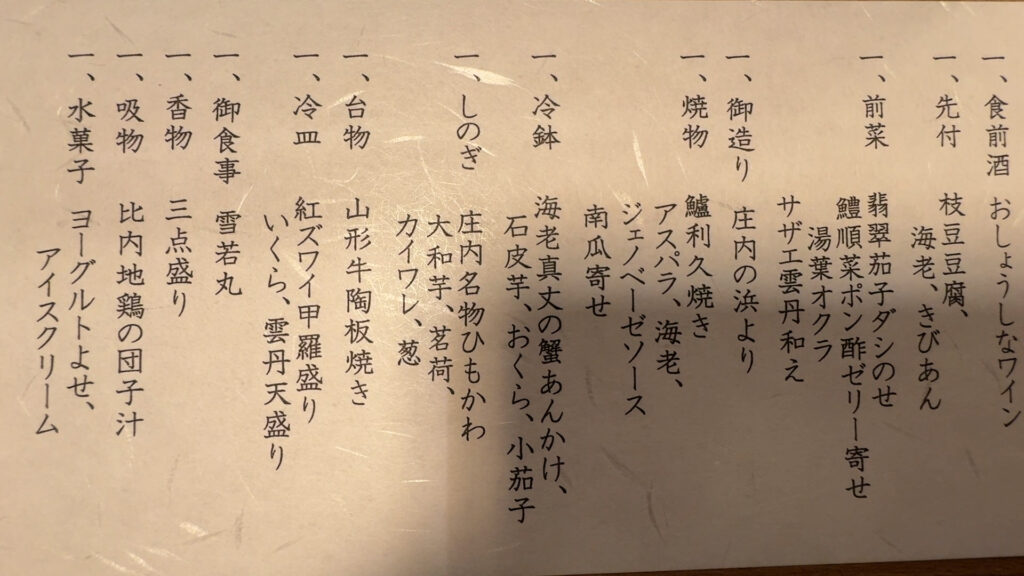 一、食前酒 おしょうしなワイン
一、先付 枝豆豆腐、
海老、きびあん
一、前菜 翡翠茄子ダシのせ
鱧順菜ポン酢ゼリー寄せ
湯葉オクラ
サザエ雲丹和え
一、御造り 庄内の浜より
一、焼物 鱸利久焼き
アスパラ、海老、
ジェノベーゼソース
南瓜寄せ
一、冷鉢 海老真丈の蟹あんかけ、
石皮芋、おくら、小茄子
一、しのぎ 庄内名物ひもかわ
大和芋、茗荷、
カイワレ、葱
一、台物 山形牛陶板焼き
一、冷皿 紅ズワイ甲羅盛り
いくら、雲丹天盛り
一、御食事 雪若丸
一、香物 三点盛り
一、吸物 比内地鶏の団子汁
一、水菓子 ヨーグルトよせ、
アイスクリーム